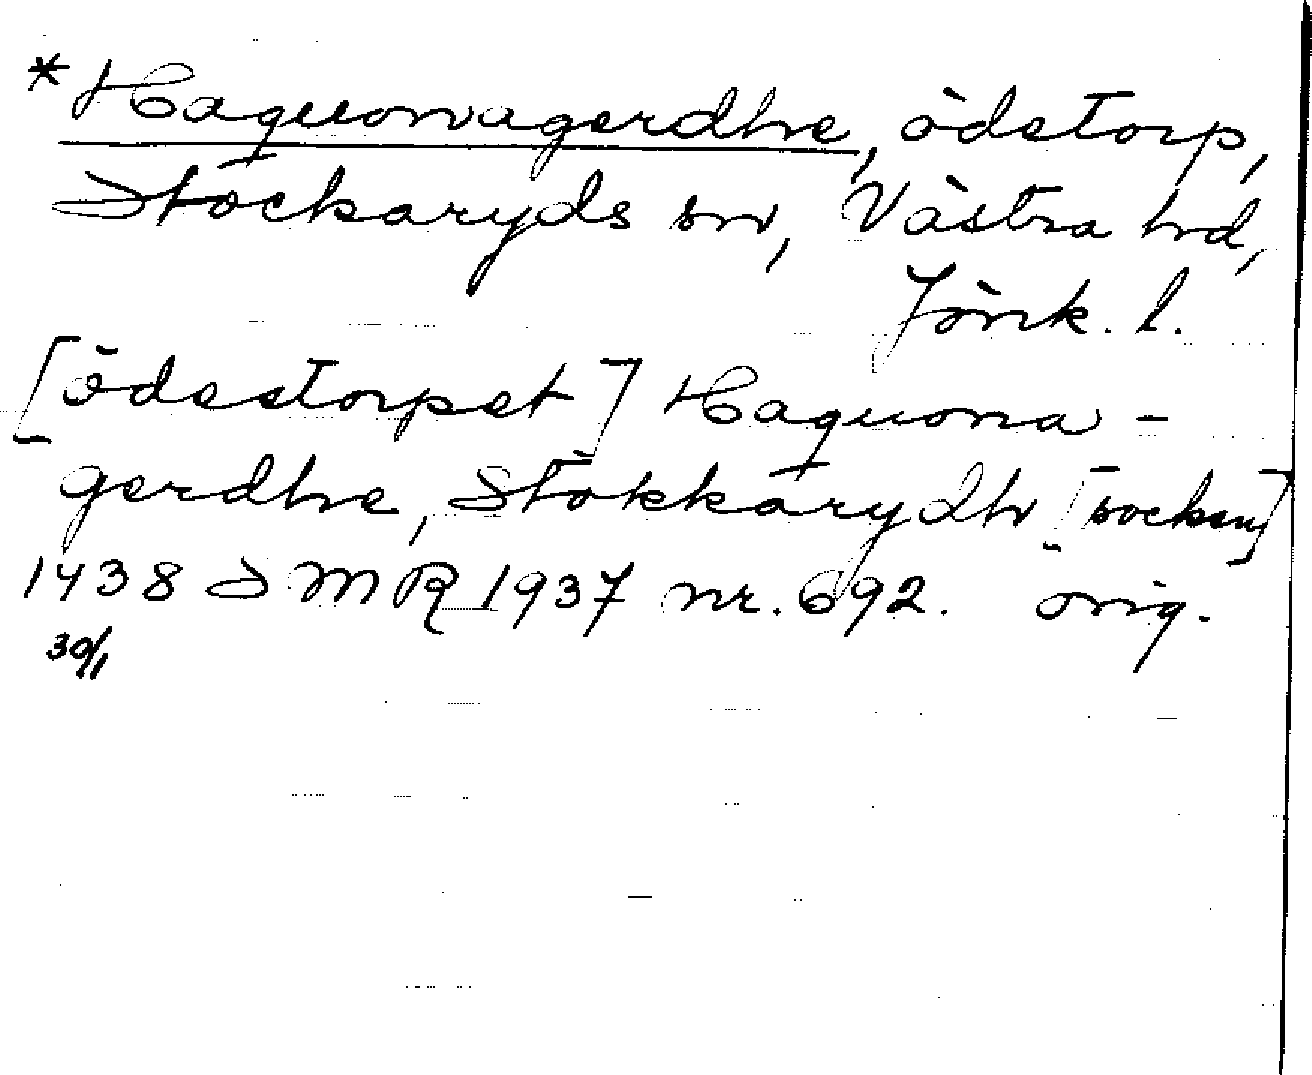 *Haquonagerdhe, ödetorp,
Stockaryds sn, Västra hd,
Jönk. l.
[ödestorpet] Haquona-
gerdhe, Stökkarydh [socken]
1438 SMR 1937 nr. 692. orig.
30/1